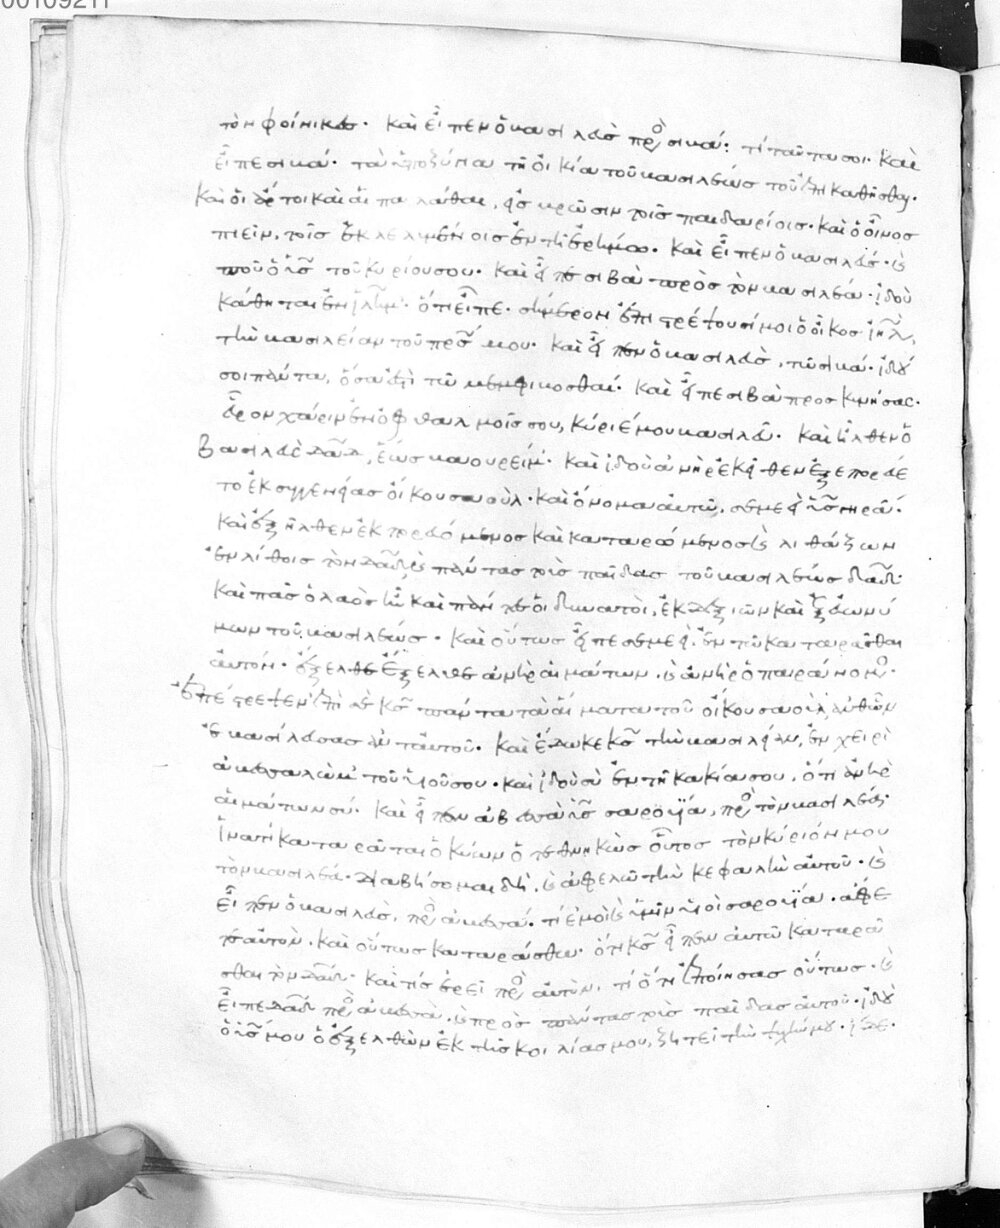 00109211
τὸν φοίνικας. καὶ εἶπεν ὁ βασιλεὺς πρὸς σιβά: τί ταῦτα σοι. καὶ
εἶπε σιβά. τὰ ὑποζύγια τῆ οἰκία τοῦ βασιλέως τοῦ ἐπικαθῆσθαι.
καὶ οἱ ἄρτοι καὶ αἱ παλάθαι, εἰς βρῶσιν τοῖς παιδαρίοις. καὶ ὁ οἶνος
πιεῖν, τοῖς ἐκλελυμένοις ἐν τῆ ἐρήμω. καὶ εἶπεν ὁ βασιλεύς. καὶ
ποῦ ὁ υἱὸς τοῦ κυρίου σου. καὶ εἶπε σιβὰ πρὸς τὸν βασιλέα. ἰδοὺ
κάθηται ἐν ἱλῆμ. ὅτι εἶπε. σήμερον ἐπιστρέψουσί μοι ὁ οἶκος ἰηλ,
τὴν βασιλείαν τοῦ πρς μου. καὶ εἶπεν ὁ βασιλεὺς, τῶ σιβά. ἰδού
σοι πάντα, ὅσα ἐστὶ τῶ μεμφιβοσθαί. καὶ εἶπε σιβὰ προσκυνήσας.
εὗρον χάριν ἐν ὀφθαλμοῖς σου, κύριέ μου βασιλεῦ. καὶ ἦλθεν ὁ
βασιλεὺς δαδ, ἕως βαουρείμ. καὶ ἰδοὺ ἀνὴρ ἐκεῖθεν ἐξεπορεύ
ετο ἐκ συγγενείας οἴκου σαούλ. καὶ ὄνομα αὐτῶ, σεμεεὶ υἱὸς γηρά.
καὶ ἐξῆλθεν ἐκπορευόμενος καὶ καταρώμενος καὶ λιθάζων
ἐν λίθοις τὸν δαδ καὶ πάντας τοὺς παῖδας τοῦ βασιλέως δαδ.
καὶ πᾶς ὁ λαὸς ἦν καὶ πάντες οἱ δυνατοὶ, ἐκ δεξιῶν καὶ ἐξ εὐωνύ
μων τοῦ βασιλέως. καὶ οὕτως εἶπε σεμεεὶ ἐν τῶ καταρᾶσθαι
αὐτόν. ἔξελθε ἔξελθε ἀνὴρ αἱμάτων, καὶ ἀνὴρ ὁ παράνομος.
ἐπέστρεψεν ἐπὶ σὲ κς πάντα τὰ αἵματα τοῦ οἴκου σαοὺλ, ἀνθ' ὧν
ἐβασίλευσας ἀντ' αὐτοῦ. καὶ ἔδωκε κς τὴν βασιλείαν, ἐν χειρὶ
ἀβεσαλὼμ τοῦ υἱοῦ σου. καὶ ἰδοὺ σὺ ἐν τῆ κακία σου, ὅτι ἀνὴρ
αἱμάτων σύ. καὶ εἶπεν ἀβεσσὰ υἱὸς σαρουΐα, πρὸς τὸν βασιλέα.
ἱνατί καταρᾶται ὁ κύων ὁ τεθνηκὼς οὗτος τὸν κύριόν μου
τὸν βασιλέα. διαβήσομαι δὴ, καὶ ἀφελῶ τὴν κεφαλὴν αὐτοῦ. καὶ
εἶπεν ὁ βασιλεὺς, πρὸς ἀβεσσά. τί ἐμοὶ καὶ ὑμῖν υἱοὶ σαρουΐα. ἄφε
τε αὐτὸν, καὶ οὕτως καταράσθω. ὅτι κς εἶπεν αὐτῶ καταρᾶ
σθαι τὸν δαδ. καὶ τίς ἐρεῖ πρὸς αὐτὸν, τί ὅτι ἐποίησας οὕτως. καὶ
εἶπε δαδ πρὸς ἀβεσσὰ, καὶ πρὸς πάντας τοὺς παῖδας αὐτοῦ. ἰδοὺ
ὁ υἱός μου ὁ ἐξελθὼν ἐκ τῆς κοιλίας μου, ζητεῖ τὴν ψυχήν μου.